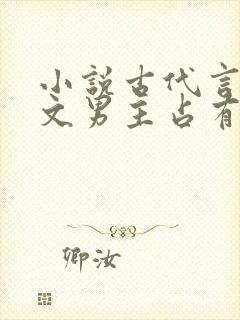 小说古代言
文男主占有
卿汝